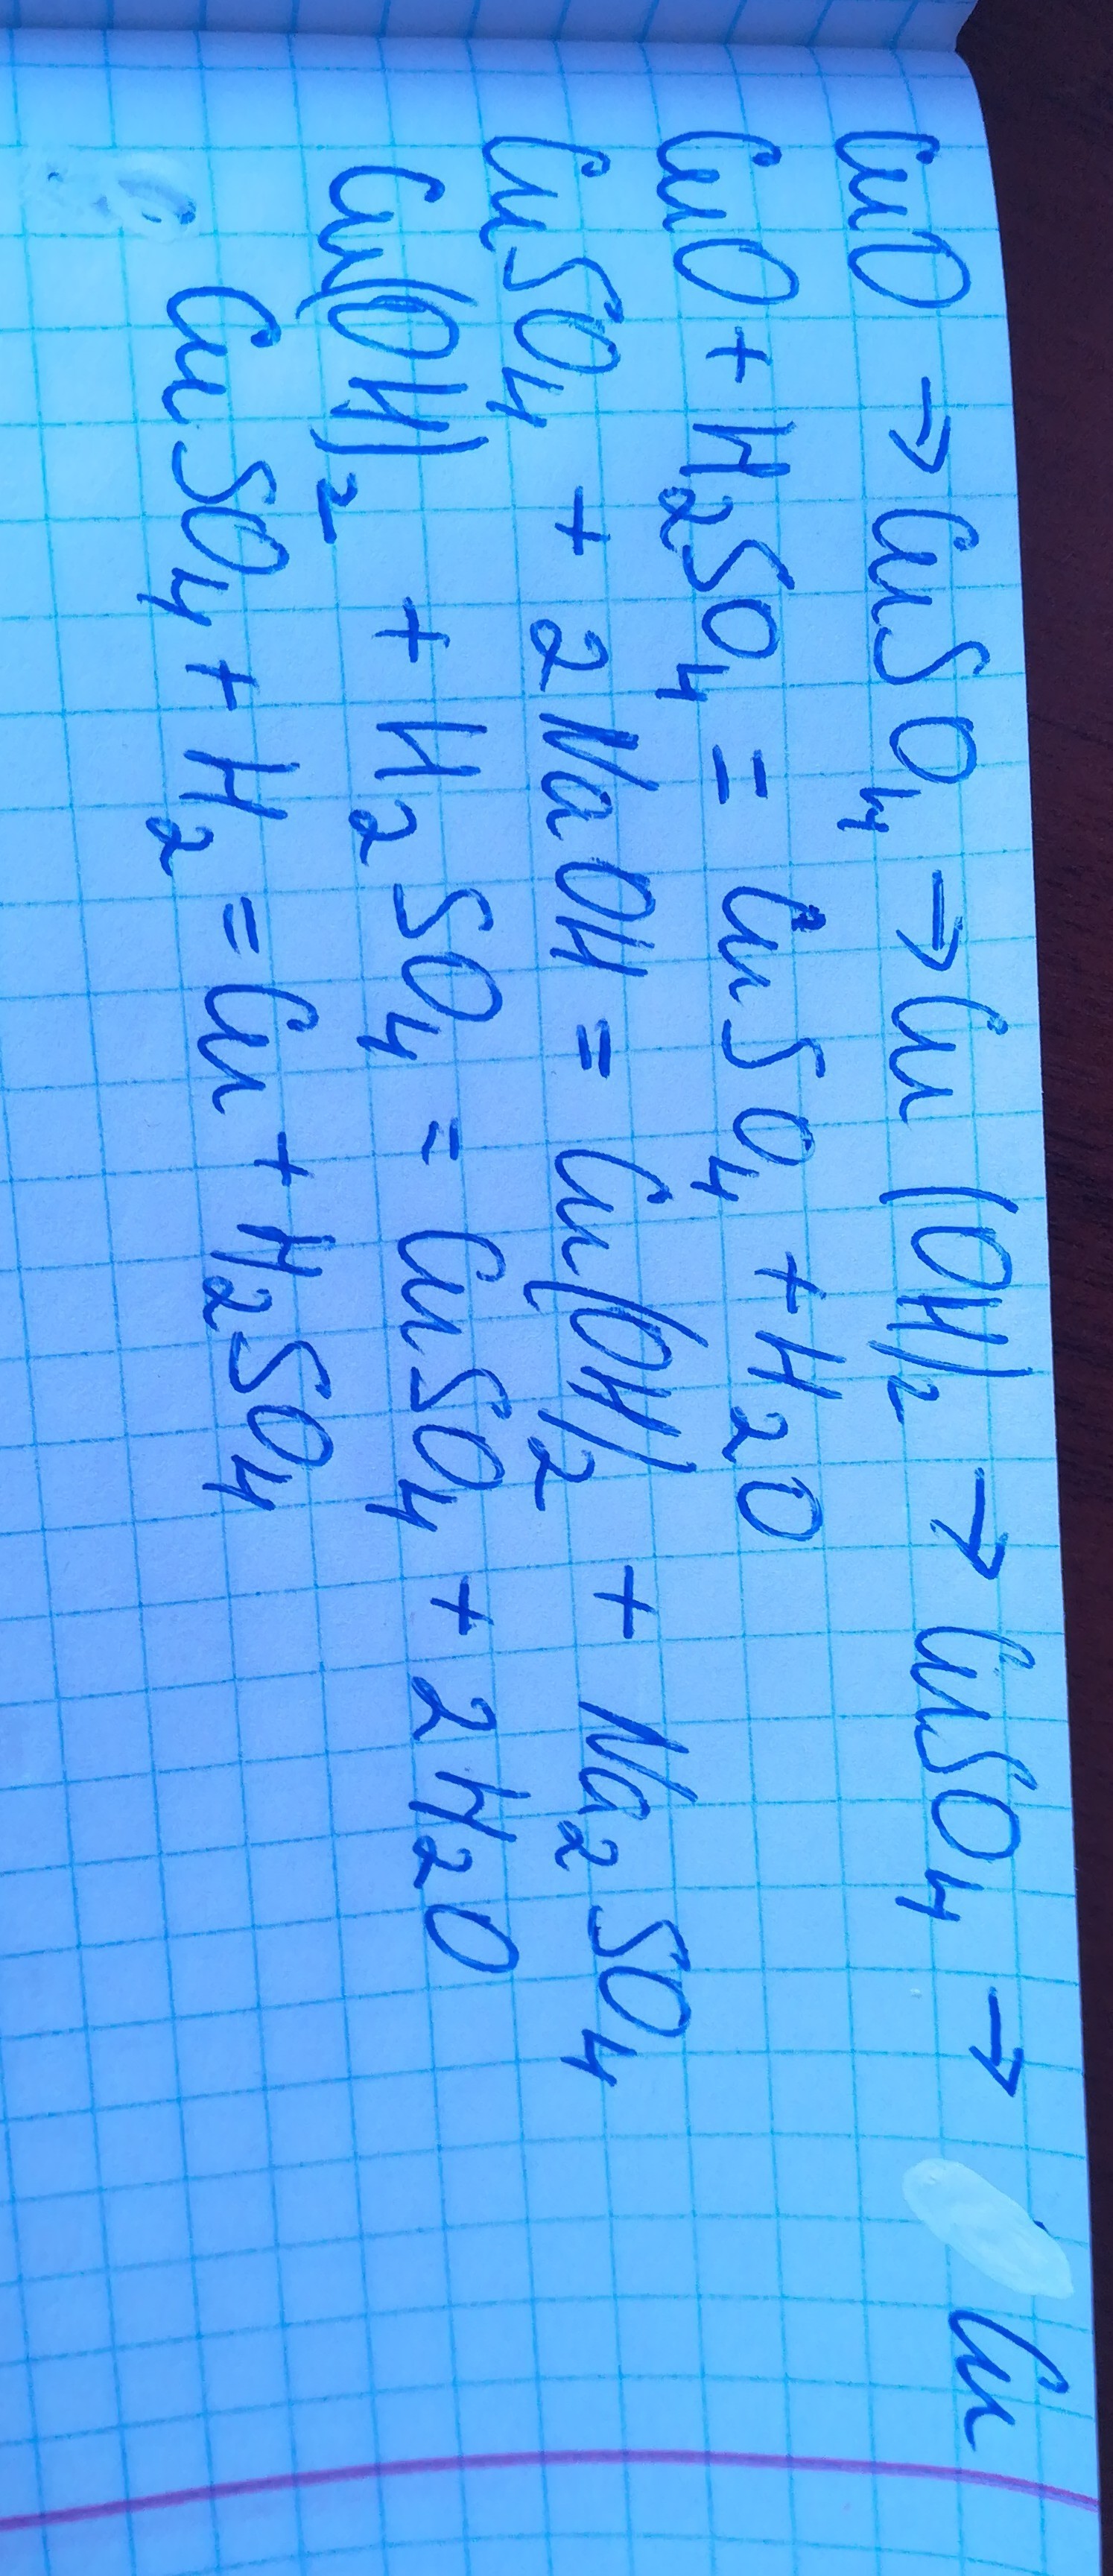 CuO → CuSO₄ → Cu(OH)₂ → CuSO₄ → Cu
CuO + H₂SO₄ = CuSO₄ + H₂O
CuSO₄ + 2NaOH = Cu(OH)₂ + Na₂SO₄
Cu(OH)₂ + H₂SO₄ = CuSO₄ + 2H₂O
CuSO₄ + H₂ = Cu + H₂SO₄